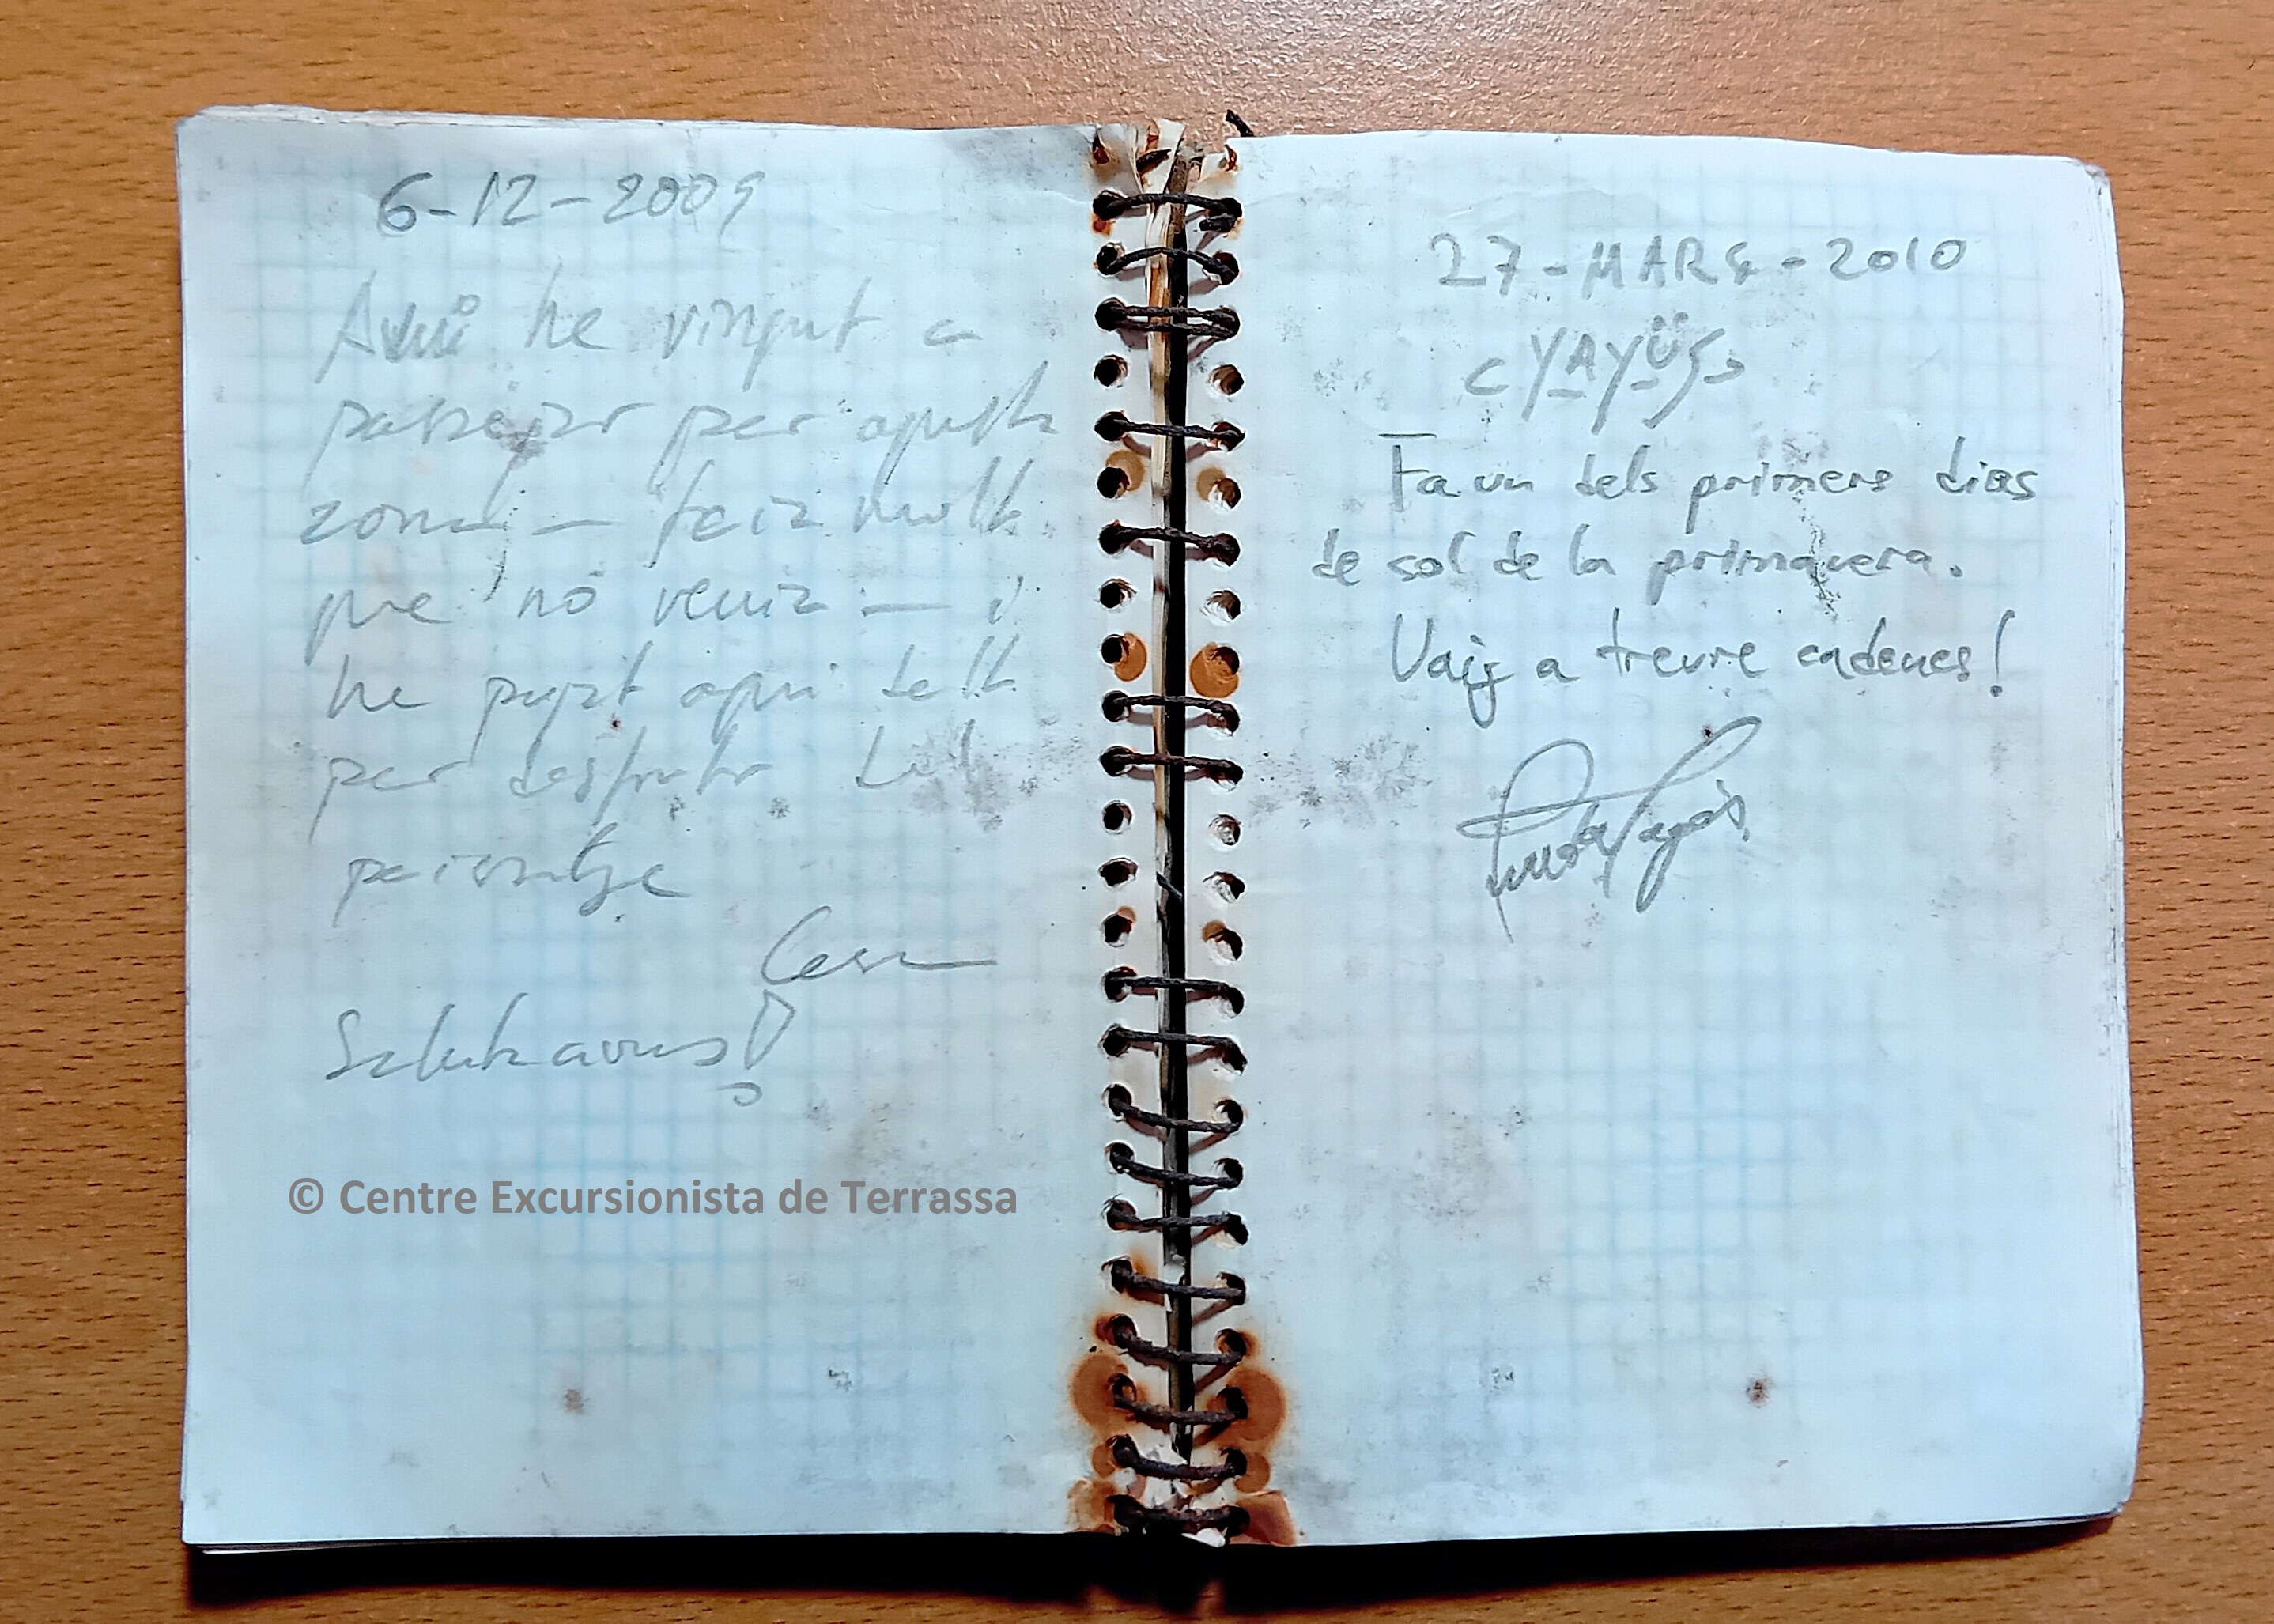 6-12-2009
Avui he vingut a
passejar per aquesta
zona — feia molt
que no venia — i
he pujat aqui dalt
per desfrutar del
paisatge
Cesar
Salut a
© Centre Excursionista de Terrassa
27-MARÇ-2010
YAYÜS
Fa un dels primers dias
de sol de la primavera.
Vaig a treure cadenes!